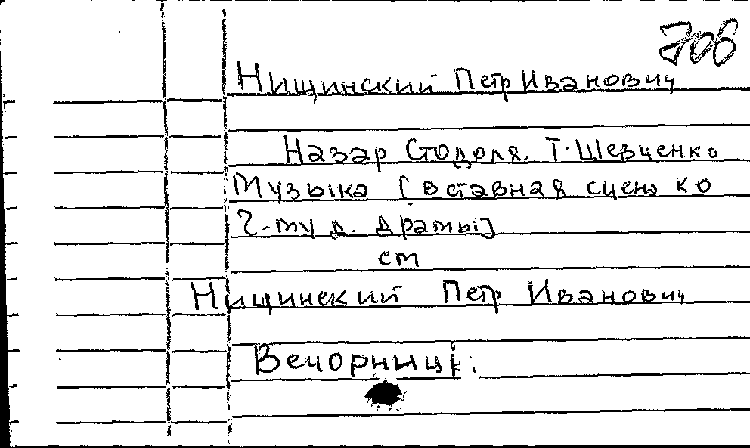 708
Нищинский Петр Иванович
Назар Стодоля. Т. Шевченко
Музыка [вставная сцена ко
2-му д. драмы]
см
Нищинский Петр Иванович
Вечорниці.